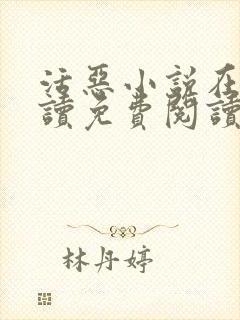 活惡小說在
讀免費閱讀
林丹婷